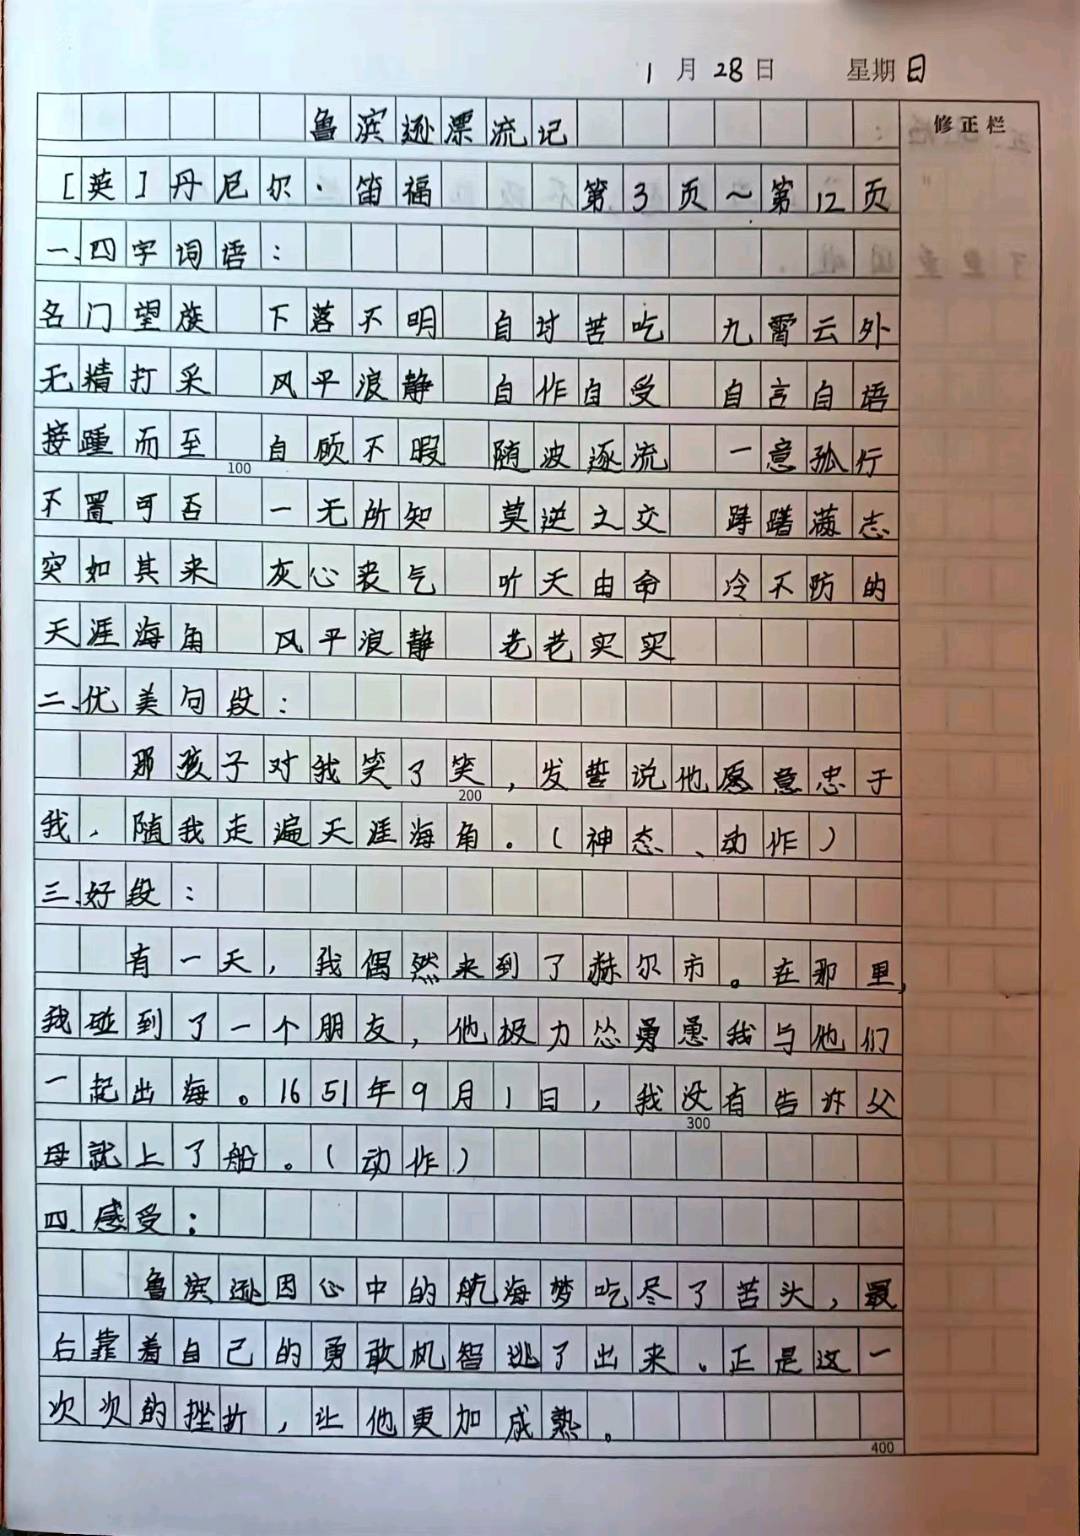 1月28日 星期日
修正栏
鲁滨逊漂流记
[英]丹尼尔·笛福 第3页~第12页
一、四字词语:
名门望族 下落不明 自讨苦吃 九霄云外
无精打采 风平浪静 自作自受 自言自语
接踵而至 自顾不暇 随波逐流 一意孤行
100
不置可否 一无所知 莫逆之交 踌躇满志
突如其来 灰心丧气 听天由命 冷不防的
天涯海角 风平浪静 老老实实
二、优美句段:
那孩子对我笑了笑,发誓说他愿意忠于
200
我,随我走遍天涯海角。(神态、动作)
三、好段:
有一天,我偶然来到了赫尔市。在那里,
我碰到了一个朋友,他极力怂勇恿我与他们
一起出海。1651年9月1日,我没有告诉父
300
母就上了船。(动作)
四、感受:
鲁滨逊因心中的航海梦吃尽了苦头,最
后靠着自己的勇敢机智逃了出来。正是这一
次次的挫折,让他更加成熟。
400